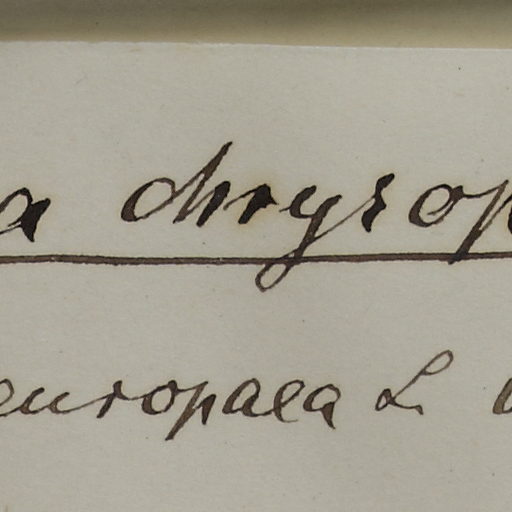 a chrysop
europaea L.